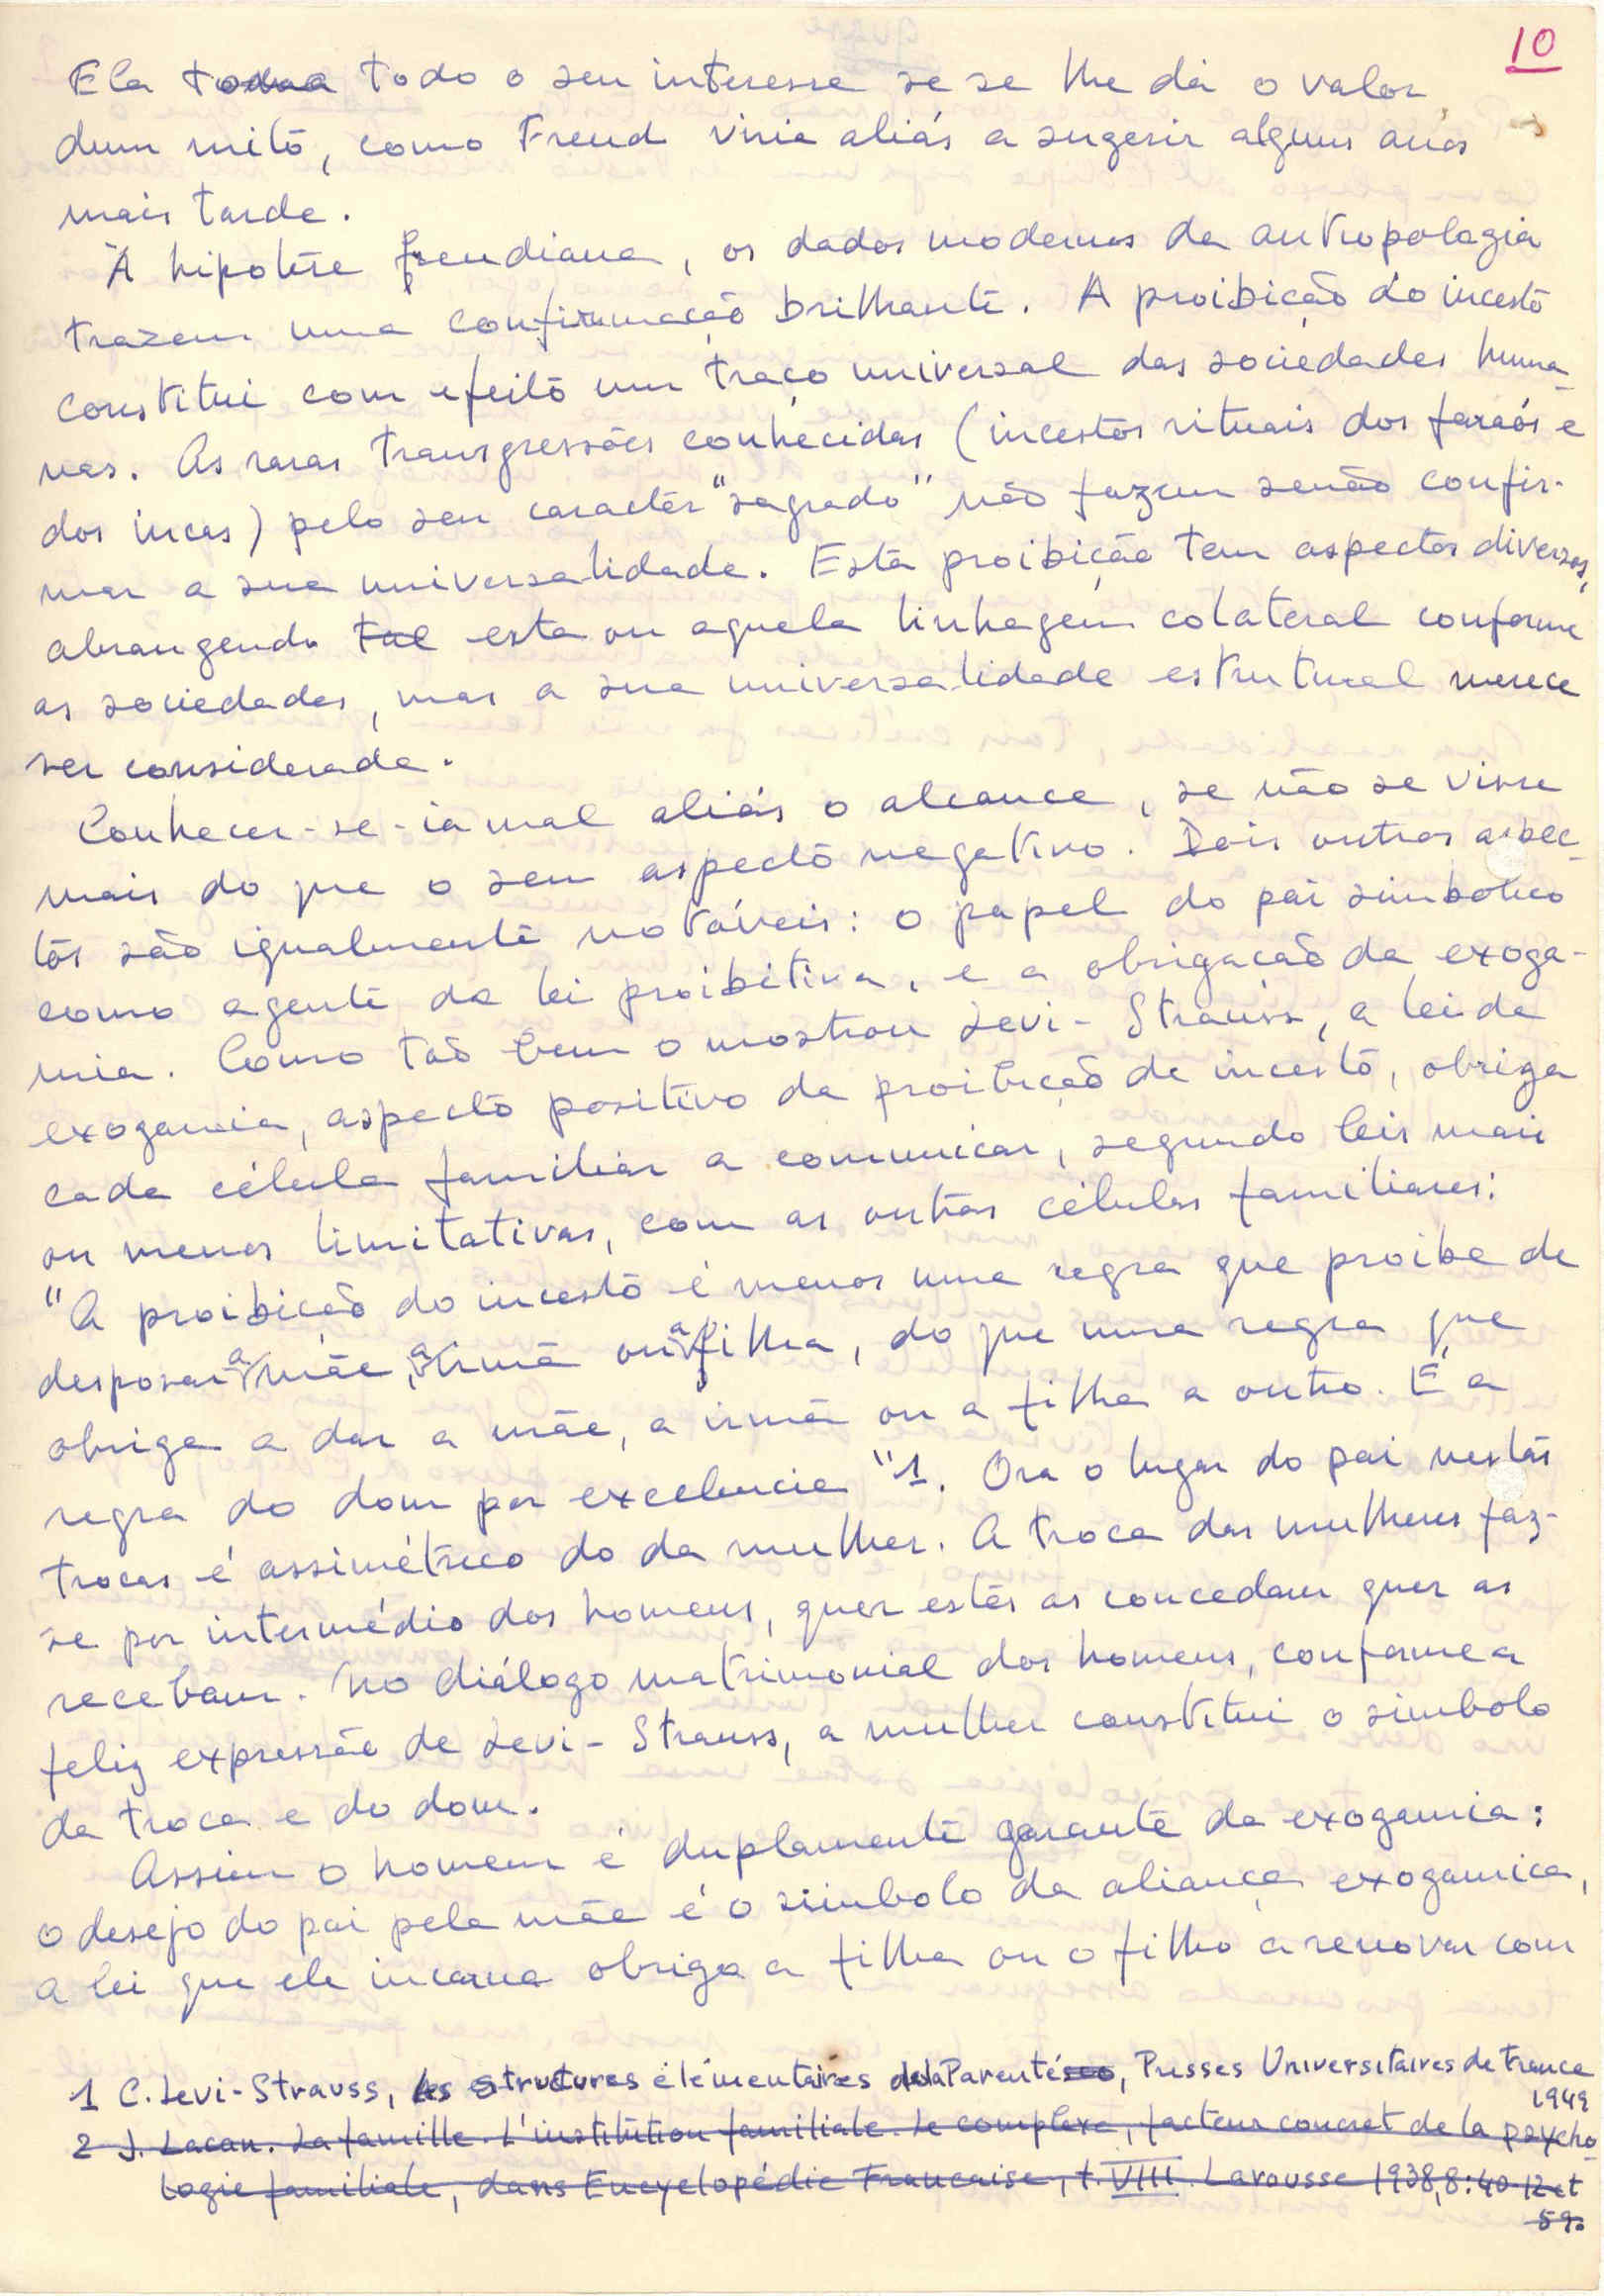 10
Ela toma todo o seu interesse se se lhe dá o valor
dum mito, como Freud viria aliás a sugerir alguns anos
mais tarde.
À hipotese freudiana, os dados modernos da antropologia
trazem uma confirmação brilhante. A proibição do incesto
constitui com efeito um traço universal das sociedades huma-
nas. As raras transgressões conhecidas (incestos rituais dos faraós e
dos incas) pelo seu caracter "sagrado" não fazem senão confir-
mar a sua universalidade. Esta proibição tem aspectos diversos,
abrangendo tal esta ou aquela linhagem colateral conforme
as sociedades, mas a sua universalidade estrutural merece
ser considerada.
Conhecer-se-ia mal aliás o alcance, se não se visse
mais do que o seu aspecto negativo. Dois outros aspec-
tos são igualmente notáveis: o papel do pai simbolico
como agente da lei proibitiva, e a obrigação da exoga-
mia. Como tão bem o mostrou Levi-Strauss, a lei da
exogamia, aspecto positivo da proibição de incesto, obriga
cada célula familiar a comunicar, segundo leis mais
ou menos limitativas, com as outras células familiares:
"A proibição do incesto é menos uma regra que proibe de
desposar a mãe, a irmã ou a filha, do que uma regra que
obriga a dar a mãe, a irmã ou a filha a outro. É a
regra do dom por excelencia "1. Ora o lugar do pai nestas
trocas é assimétrico do da mulher. A troca das mulheres faz-
se por intermédio dos homens, quer estes as concedam quer as
recebam. No diálogo matrimonial dos homens, conforme a
feliz expressão de Levi-Strauss, a mulher constitui o simbolo
da troca e do dom.
Assim o homem é duplamente garante da exogamia:
o desejo do pai pela mãe é o simbolo da aliança exogamica,
a lei que ele incarna obriga a filha ou o filho a renovar com
1 C. Levi-Strauss, les structures élémentaires de la Parenté, Presses Universitaires de France
1949
2 J. Lacan. La famille. L'institution familiale. Le complexe, facteur concret de la psycho
logie familiale, dans Encyclopédie Francaise, t. VIII Larousse 1938, 8:40-12 et
59.